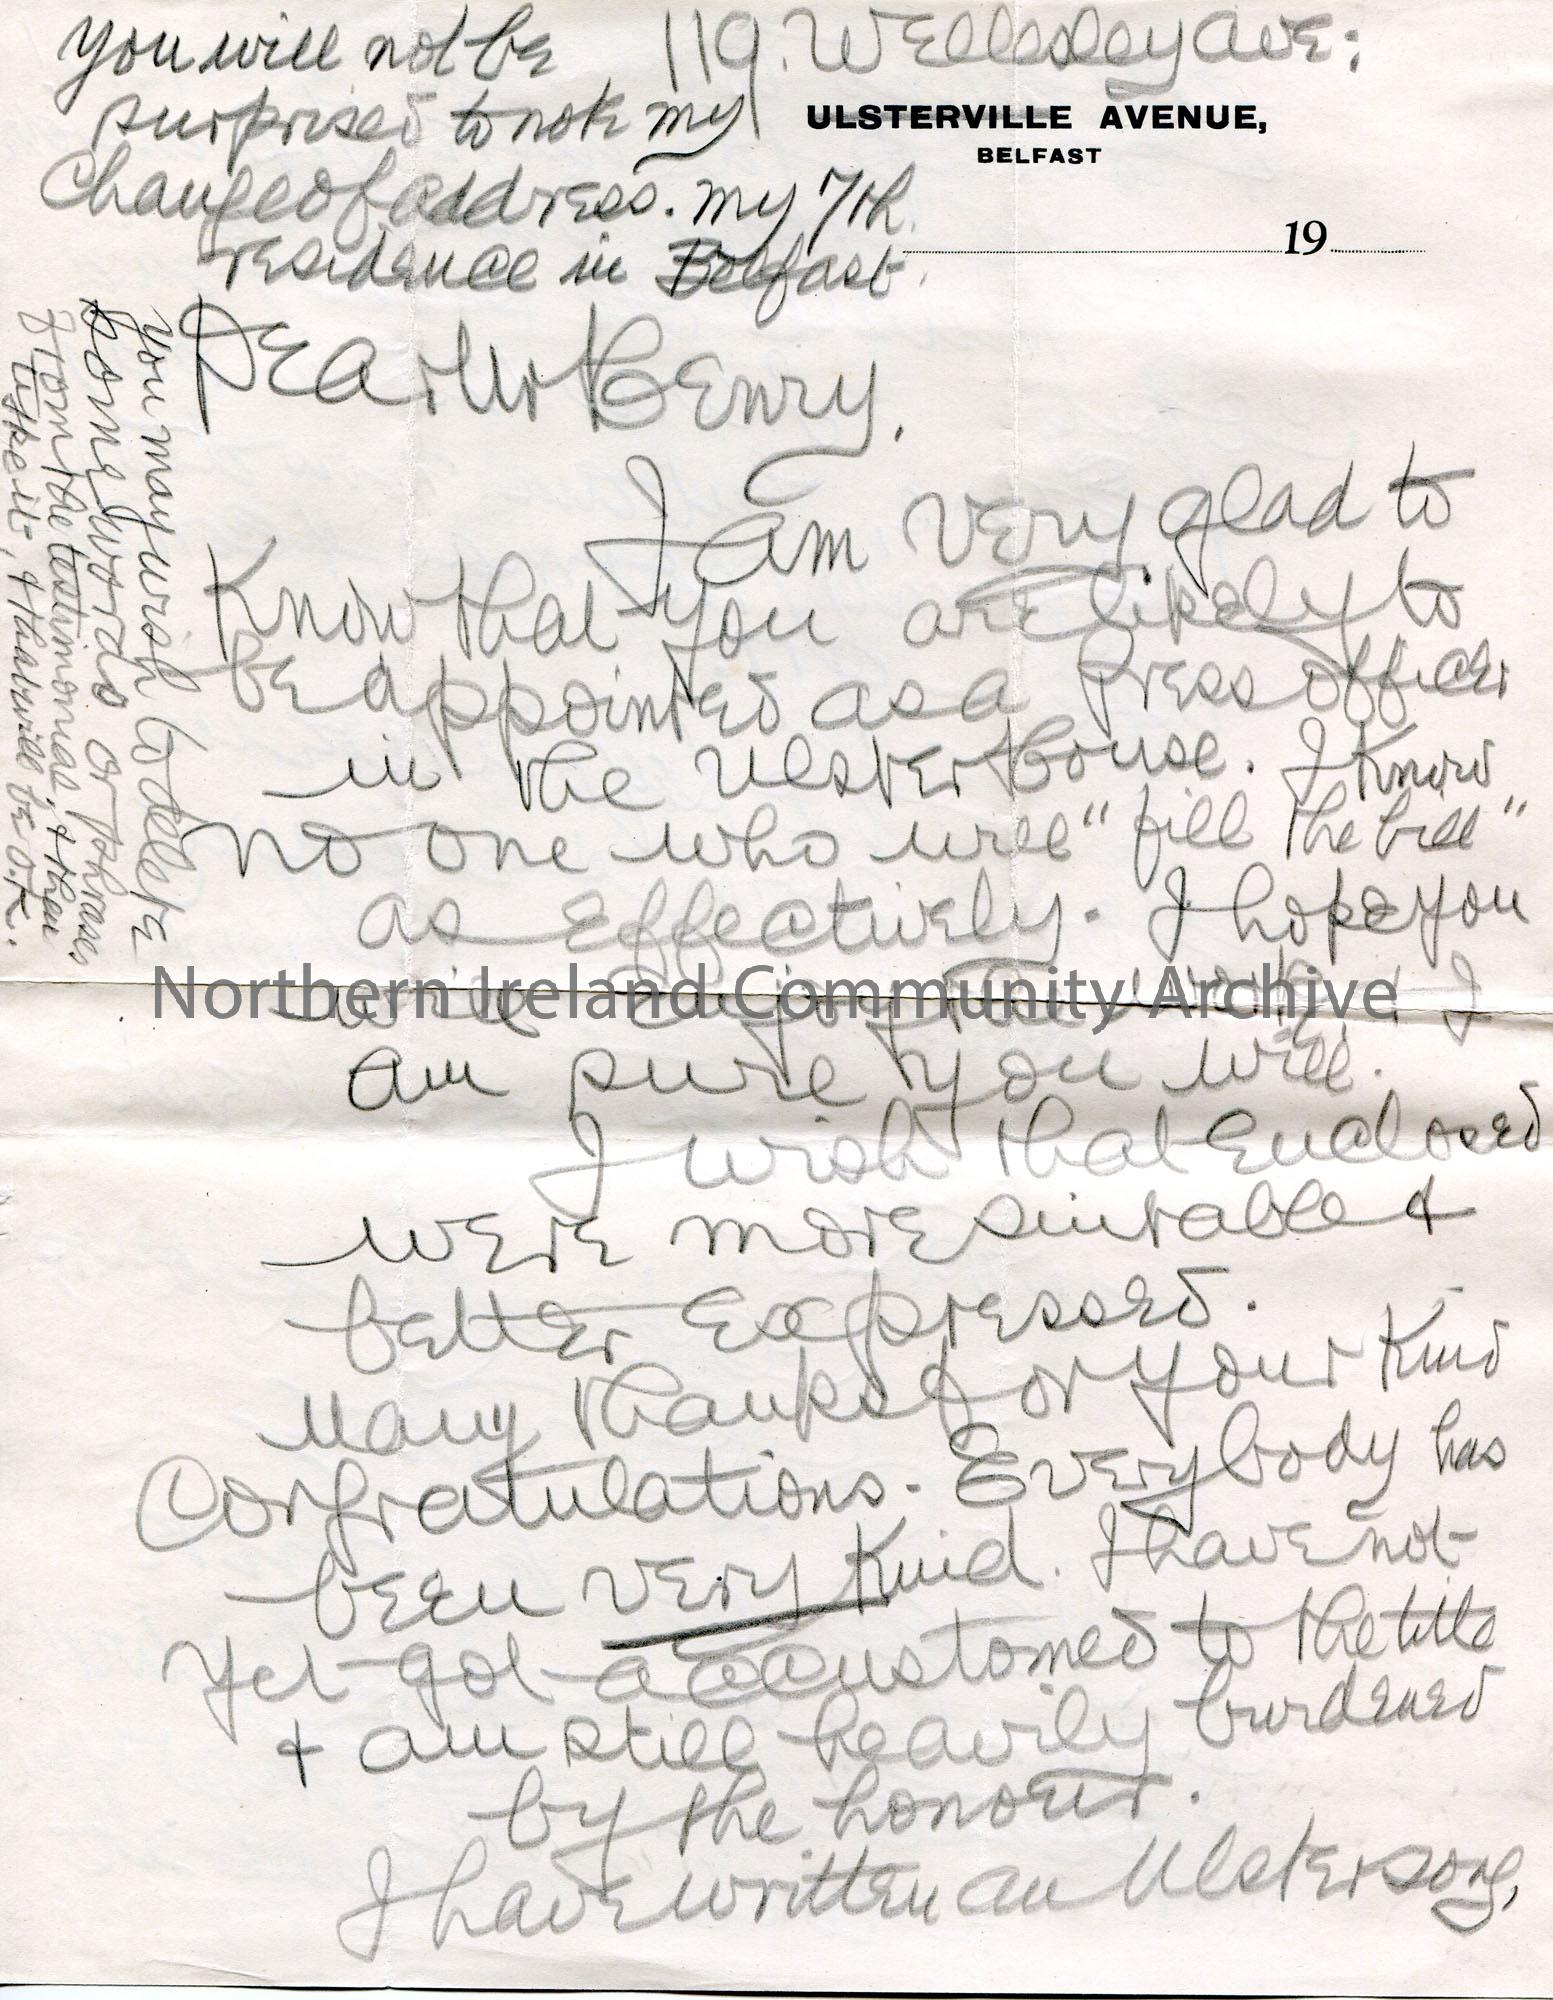 119. Wellesley Ave:
ULSTERVILLE AVENUE,
BELFAST
19
you will not be
surprised to note my
change of address. my 7th
residence in Belfast.
Dear Mr Henry,
I am very glad to
know that you are likely to
be appointed as a Press officer
in the Ulster House. I know
no one who will "fill the bill"
as effectively. I hope you
will enjoy the work, I
am sure you will.
I wish that enclosed
were more suitable &
better expressed.
Many thanks for your kind
congratulations. Everybody has
been very kind. I have not
yet got accustomed to the title
& am still heavily burdened
by the honour.
I have written an Ulster song,
you may wish to delete
some words or phrases
from the testimonial, & then
type it, & that will be O.K.
Northern Ireland Community Archive